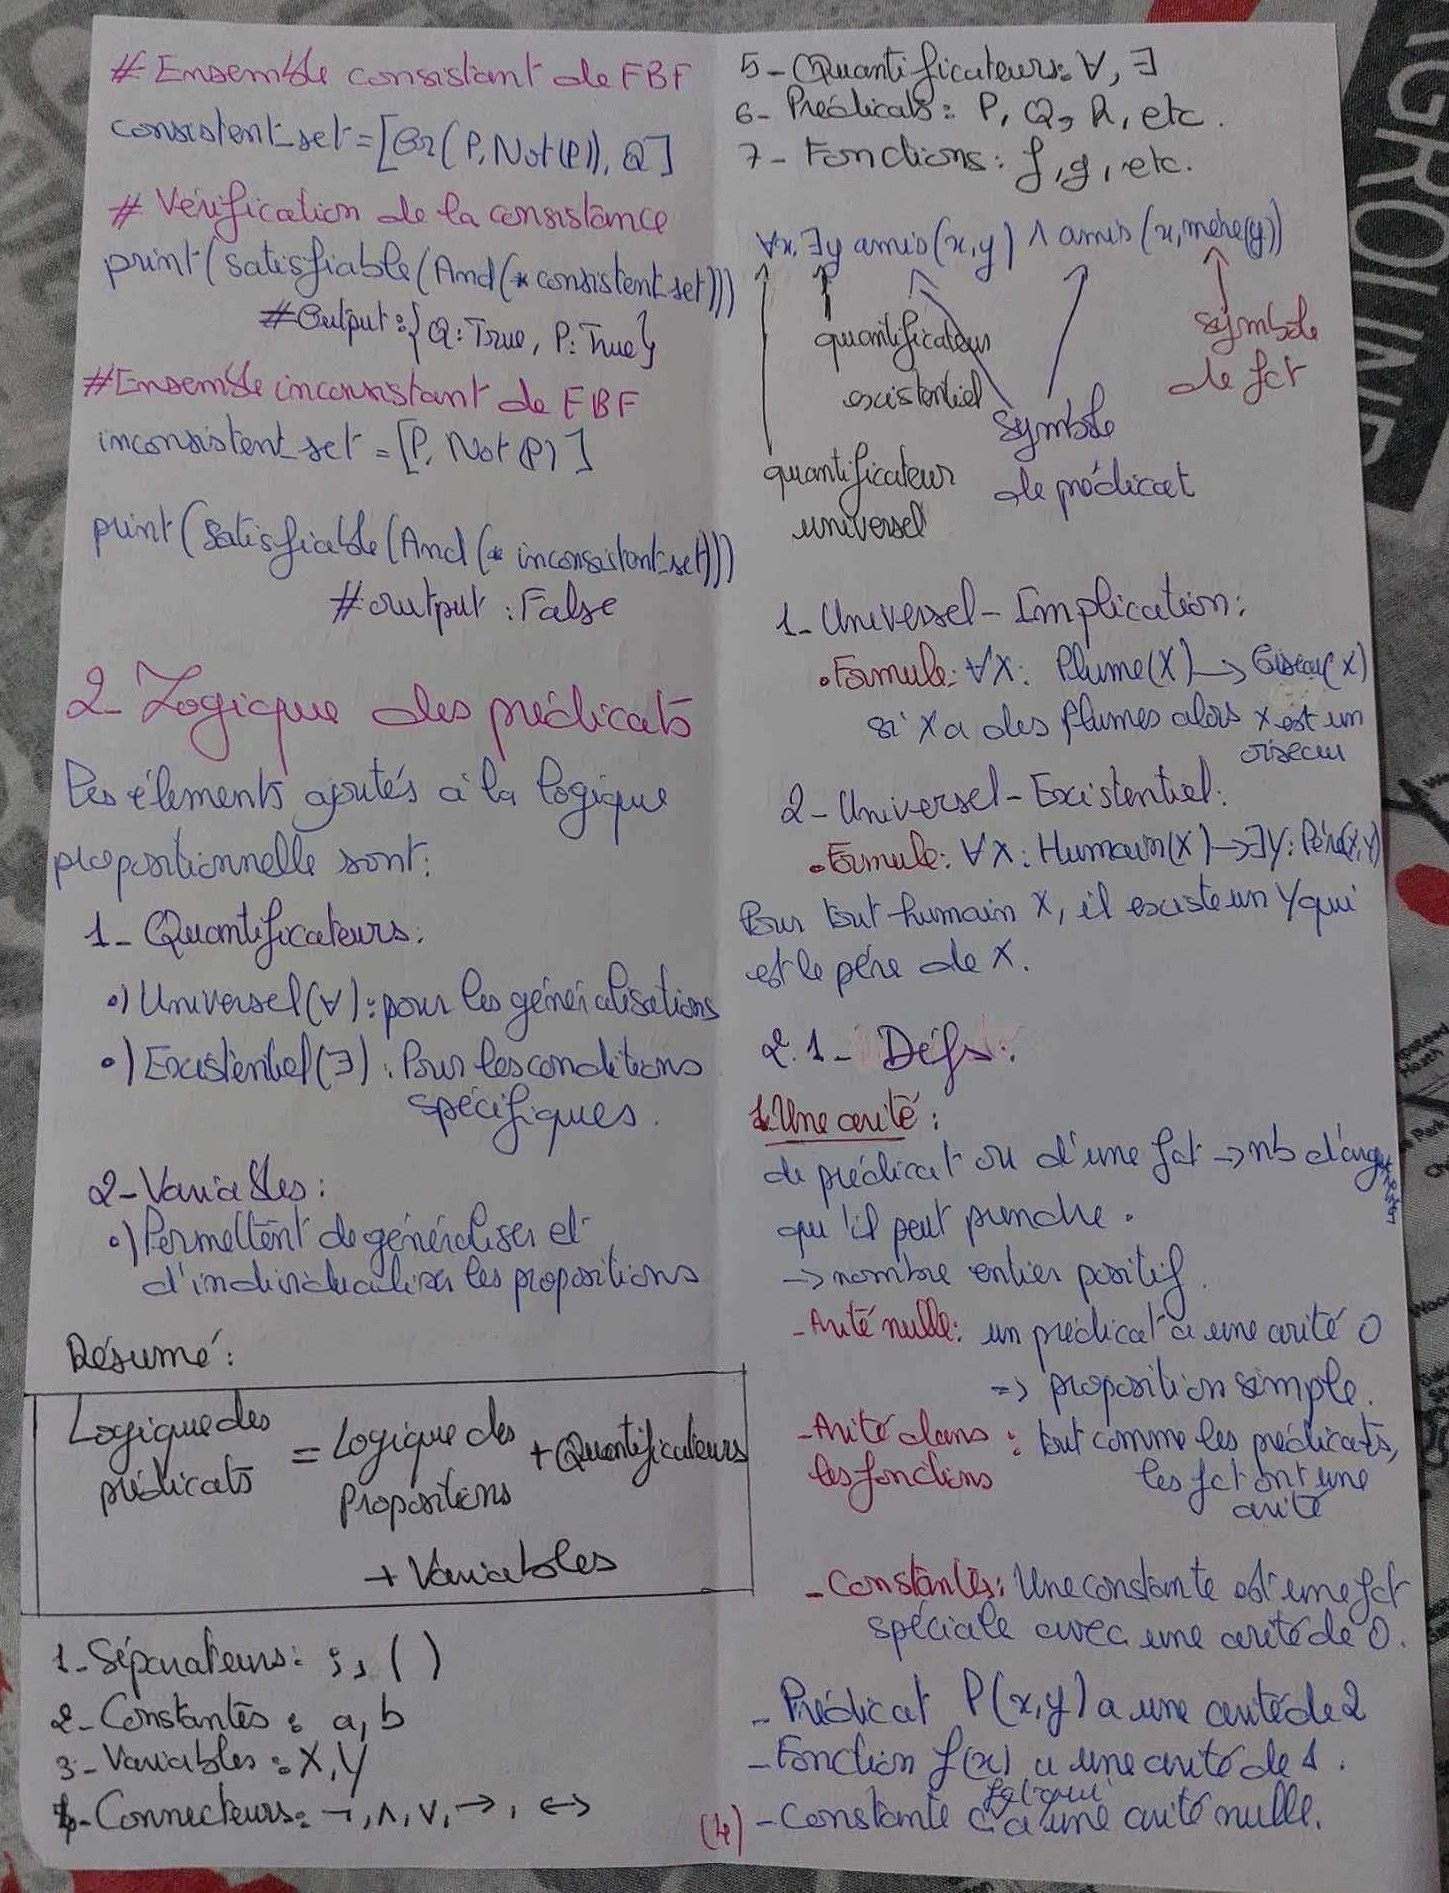 # Ensemble consistant de FBF
consistent_set = [Or(P, Not(P)), Q]
# Vérification de la consistance
print(satisfiable(And(* consistent_set)))
# Output : {Q : True, P : True}
# Ensemble inconsistant de FBF
inconsistent_set = [P, Not(P)]
print(satisfiable(And(* inconsistent_set)))
# output : False
2- Logique des prédicats
Les élements ajoutés à la logique
propositionnelle sont :
1- Quantificateurs :
•) Universel (∀) : pour les généralisations
•) Existentiel (∃) : Pour les conditions
spécifiques.
2- Variables :
•) Permettent de généraliser et
d'individualiser les propositions
Résumé :
Logique des prédicats = Logique des Propositions + Quantificateurs
+ Variables
1- Séparateurs : , ; ( )
2- Constantes : a, b
3- Variables : X, Y
4- Connecteurs : ¬, ∧, ∨, →, ↔
5- Quantificateurs : ∀, ∃
6- Prédicats : P, Q, R, etc.
7- Fonctions : f, g, etc.
∀x, ∃y amis(x, y) ∧ amis(x, mère(y))
quantificateur
existentiel
symbole
de fct
symbole
de prédicat
quantificateur
universel
1- Universel - Implication :
• Formule : ∀X : Plume(X) → Oiseau(X)
si X a des plumes alors X est un
oiseau
2- Universel - Existentiel :
• Formule : ∀X : Humain(X) → ∃Y : Père(X, Y)
Pour tout humain X, il existe un Y qui
est le père de X.
2.1- Défs :
1. Une arité :
de prédicat ou d'une fct → nb d'arguments
qu'il peut prendre.
→ nombre entier positif.
- Arité nulle : un prédicat a une arité 0
=> proposition simple.
- Arité dans les fonctions : tout comme les prédicats,
les fct ont une
arité
- Constantes : Une constante est une fct
spéciale avec une arité de 0.
- Prédicat P(x, y) a une arité de 2
- Fonction f(x) a une arité de 1.
- Constante c a une arité nulle.
(4)
GROIND